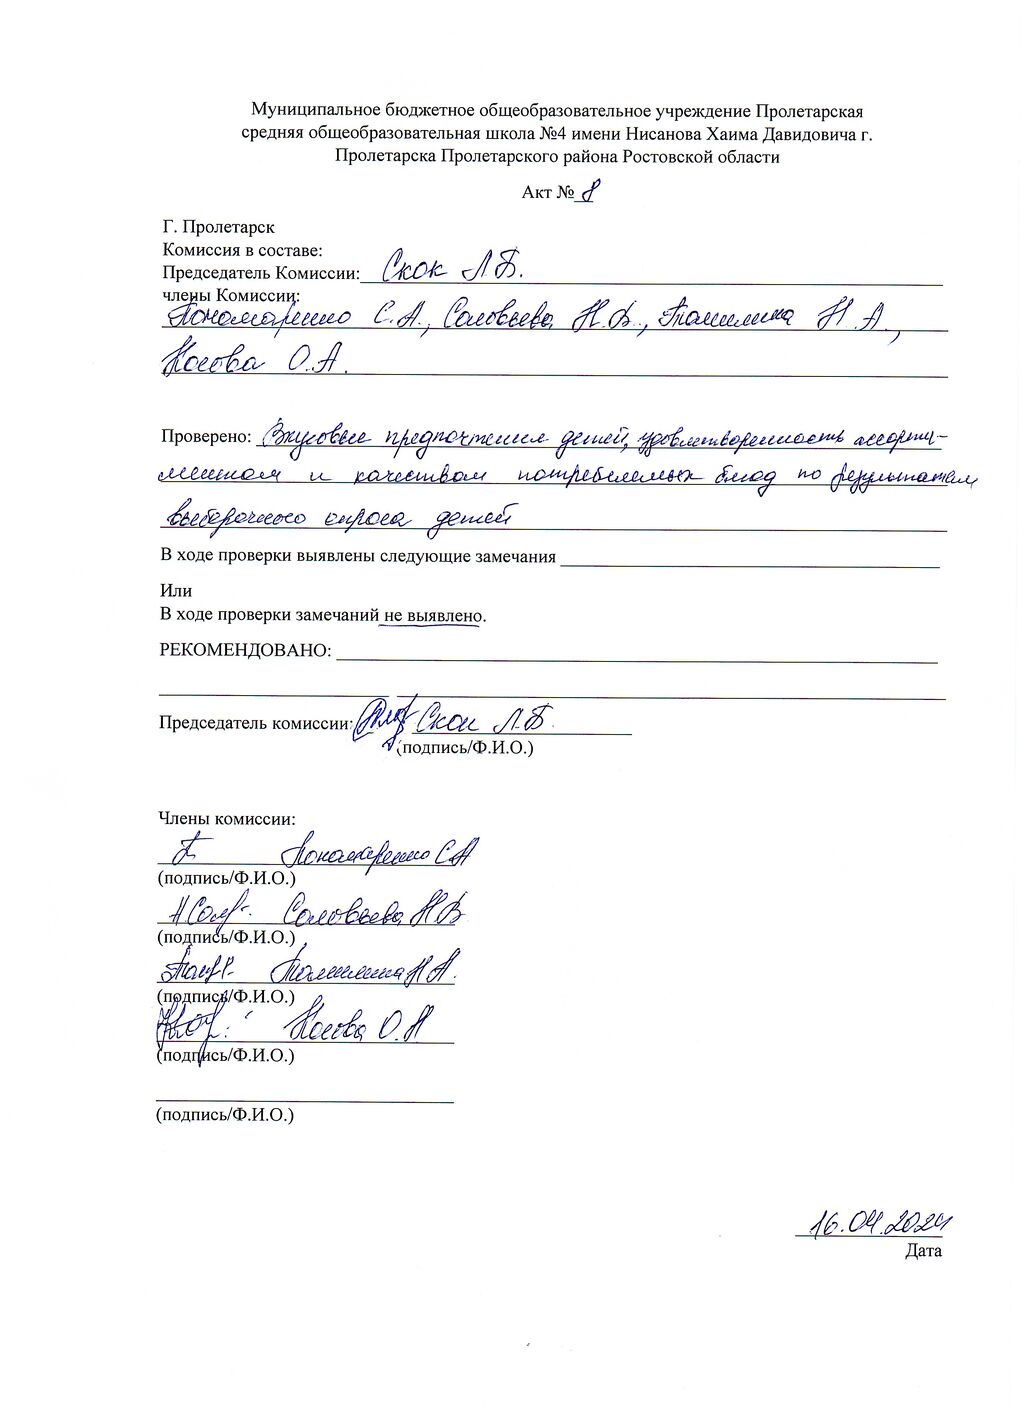 Муниципальное бюджетное общеобразовательное учреждение Пролетарская
средняя общеобразовательная школа №4 имени Нисанова Хаима Давидовича г.
Пролетарска Пролетарского района Ростовской области
Акт № 8
Г. Пролетарск
Комиссия в составе:
Председатель Комиссии: Скок Л.Б.
члены Комиссии:
Пономаренко С.А., Соловьева Н.В., Томилина Н.А.,
Носова О.А.
Проверено: Вкусовые предпочтения детей, удовлетворенность ассорти-
ментом и качеством потребляемых блюд по результатам
выборочного опроса детей
В ходе проверки выявлены следующие замечания
Или
В ходе проверки замечаний не выявлено.
РЕКОМЕНДОВАНО:
Председатель комиссии: Скок Л.Б.
(подпись/Ф.И.О.)
Члены комиссии:
Пономаренко С.А
(подпись/Ф.И.О.)
Соловьева Н.В
(подпись/Ф.И.О.)
Томилина Н.А.
(подпись/Ф.И.О.)
Носова О.А
(подпись/Ф.И.О.)
(подпись/Ф.И.О.)
16.04.2024
Дата